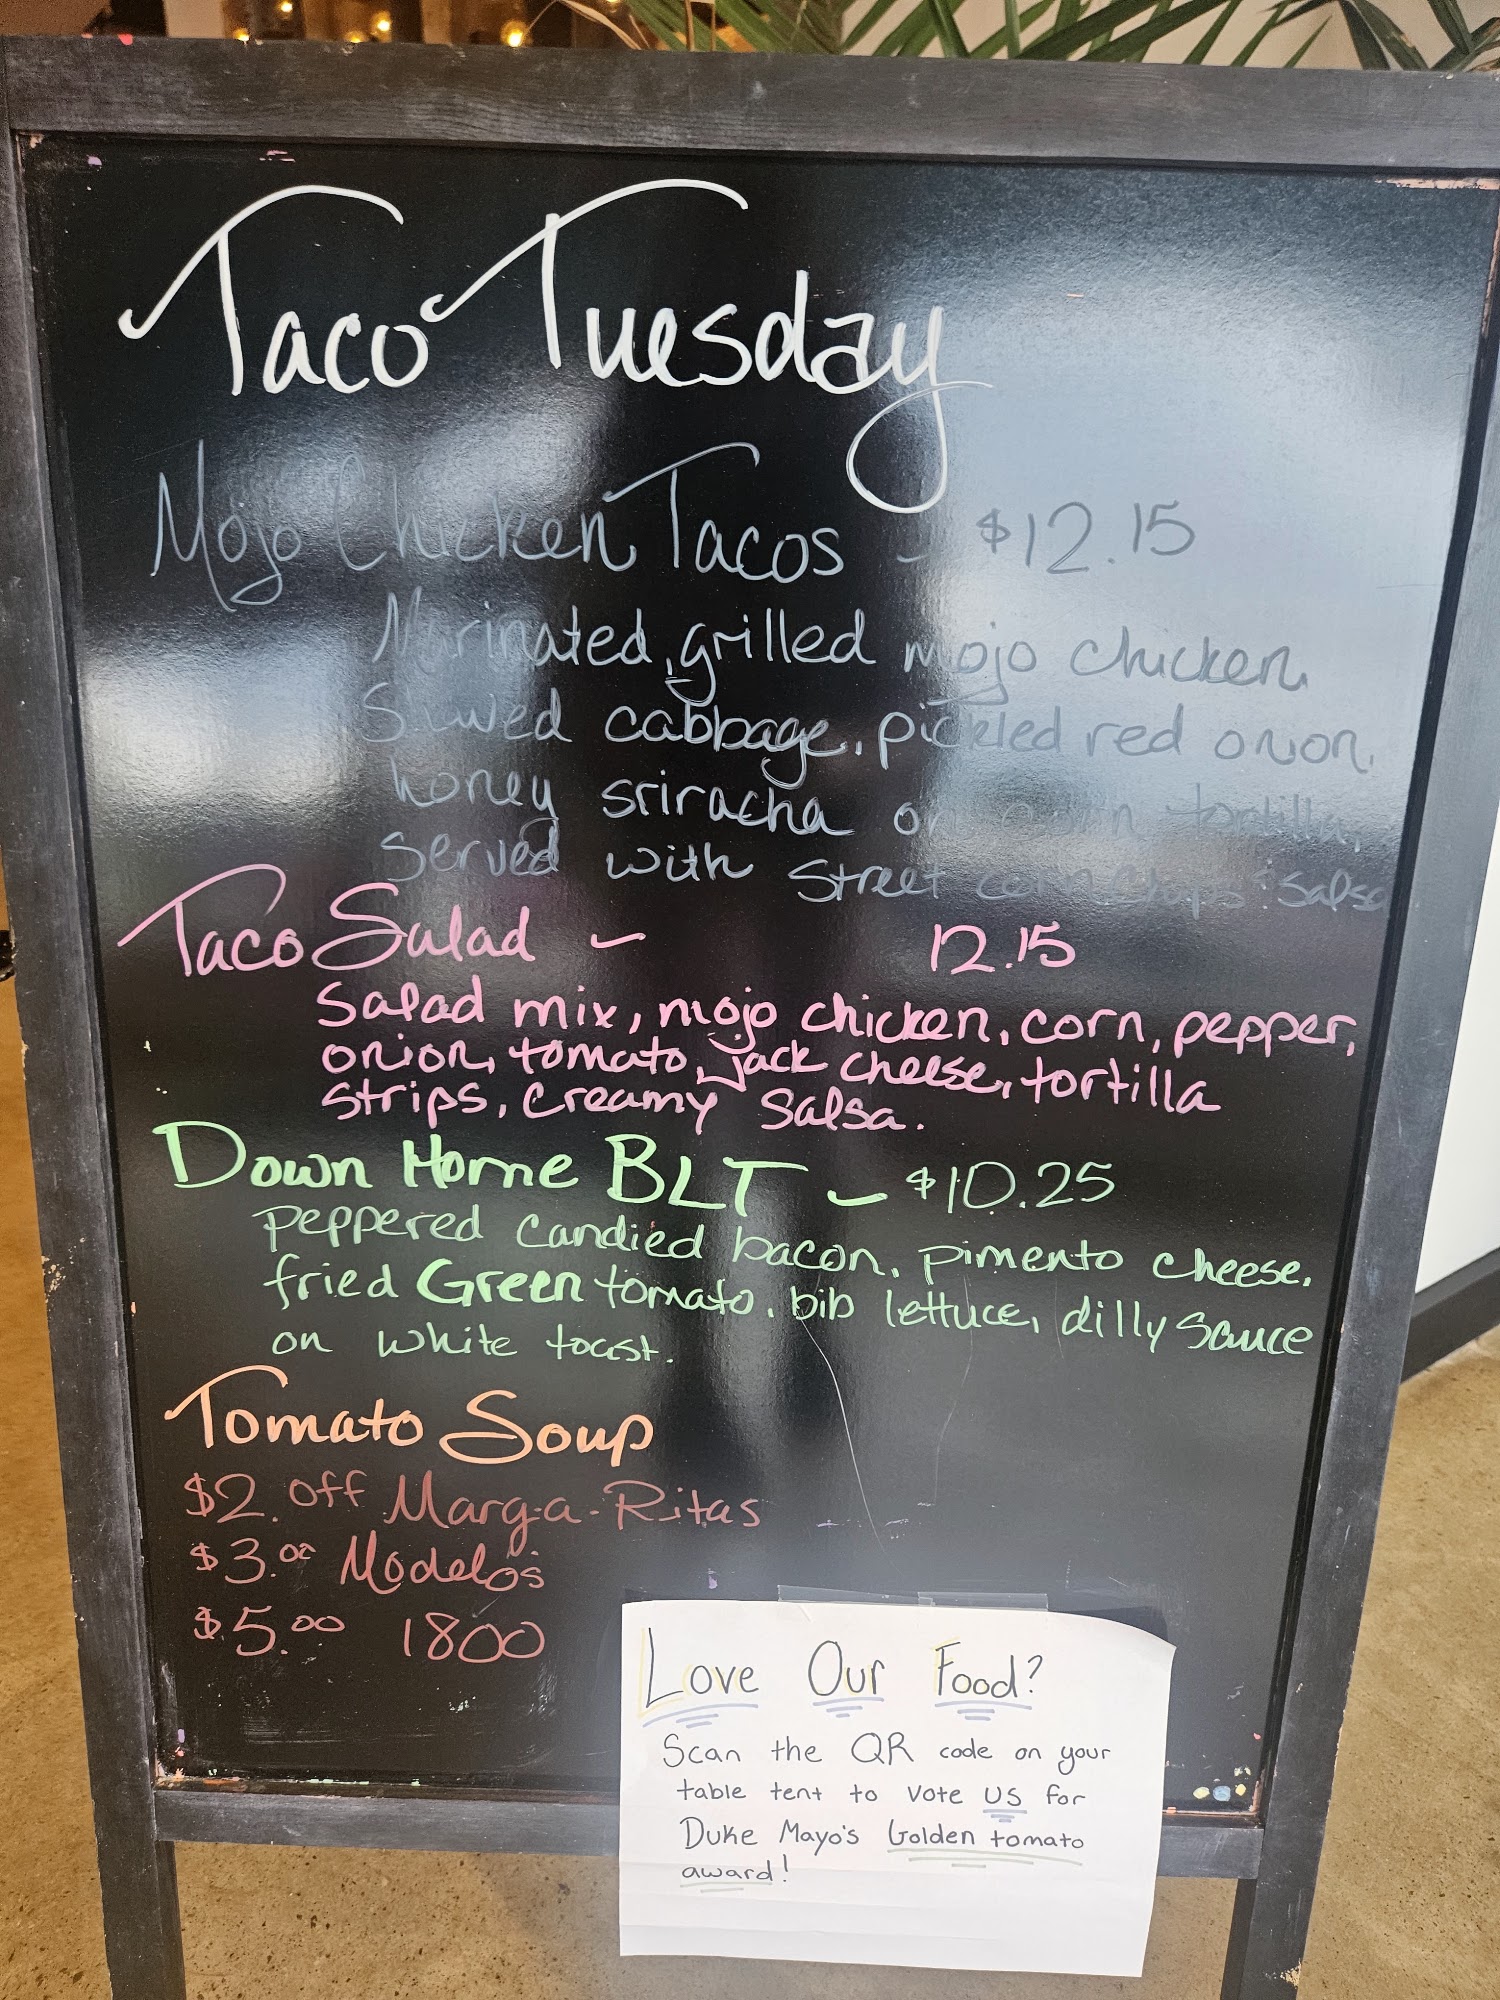 Taco Tuesday
Mojo Chicken Tacos - $12.15
Marinated, grilled mojo chicken,
Slawed cabbage, pickled red onion,
honey sriracha on corn tortilla,
served with Street corn chips & salsa
Taco Salad - 12.15
Salad mix, mojo chicken, corn, pepper,
onion, tomato, jack cheese, tortilla
strips, creamy salsa.
Down Home BLT - $10.25
peppered candied bacon, pimento cheese,
fried Green tomato, bib lettuce, dilly sauce
on white toast.
Tomato Soup
$2. off Marg-a-Ritas
$3.00 Modelos
$5.00 1800
Love Our Food?
Scan the QR code on your
table tent to vote US for
Duke Mayo's Golden tomato
award!